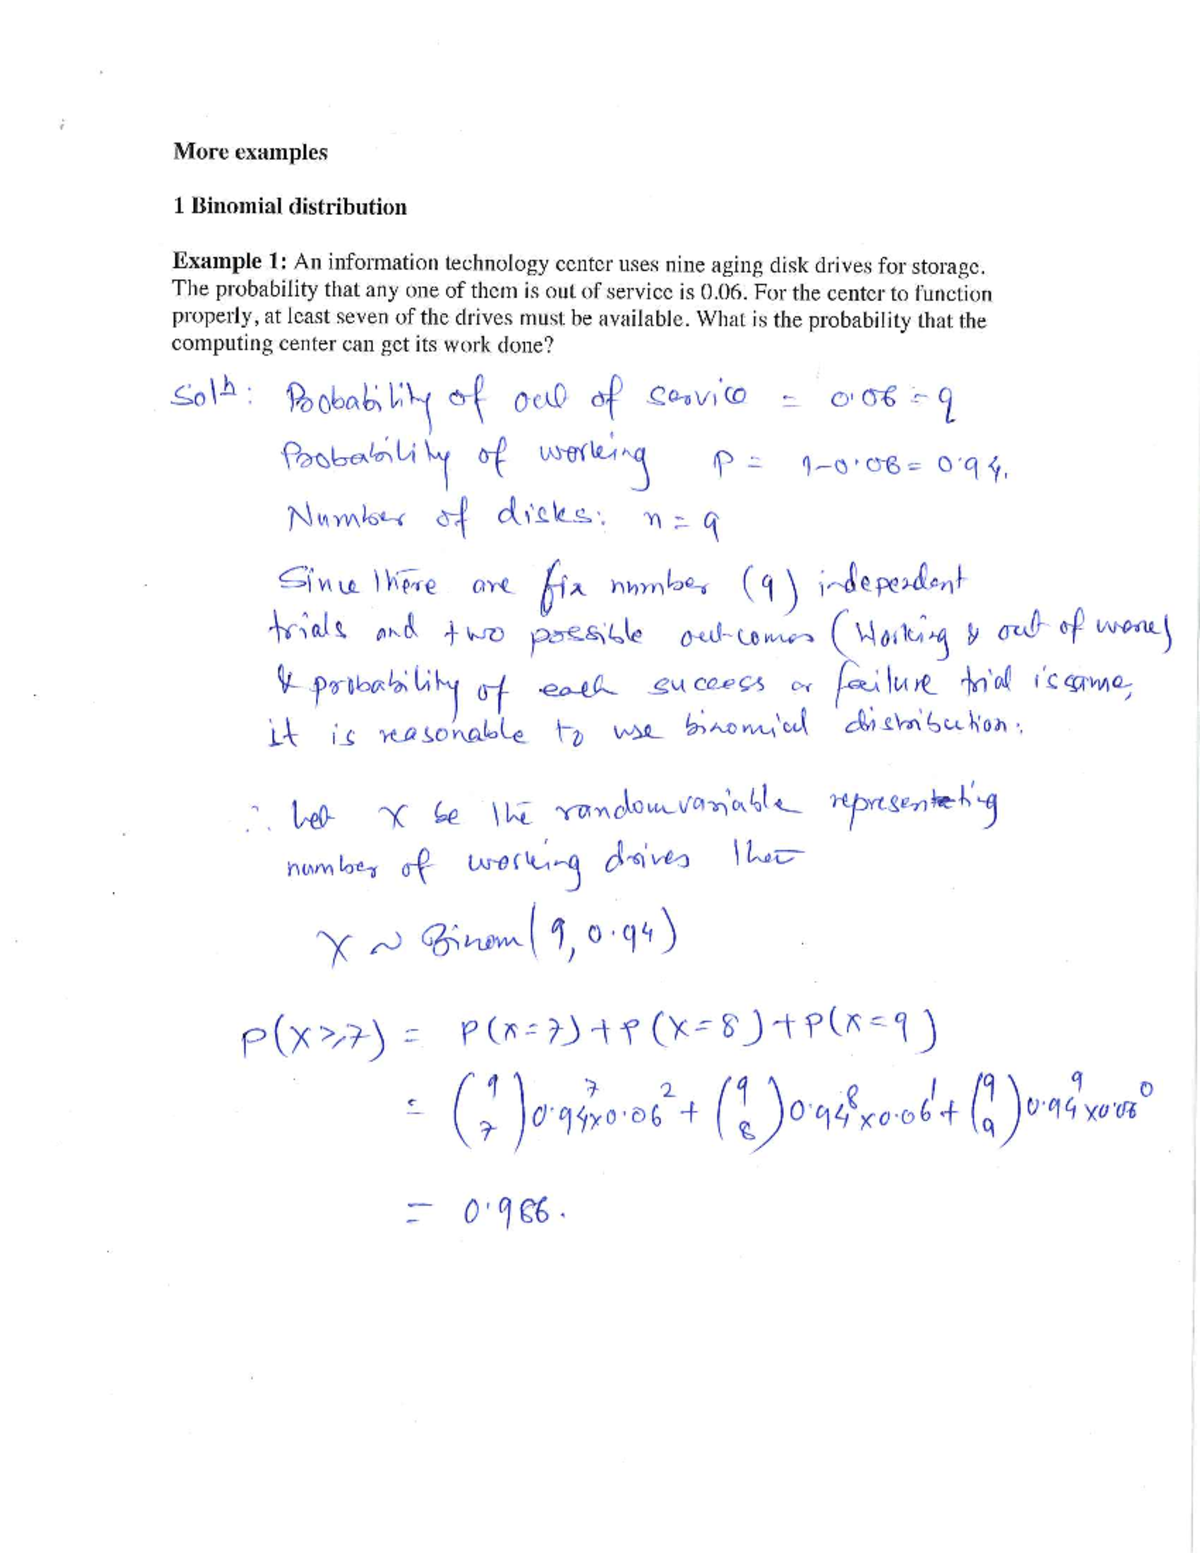 More examples
1 Binomial distribution
Example 1: An information technology center uses nine aging disk drives for storage.
The probability that any one of them is out of service is 0.06. For the center to function
properly, at least seven of the drives must be available. What is the probability that the
computing center can get its work done?
Solⁿ: Probability of out of service = 0.06 = q
Probability of working p = 1-0.06 = 0.94.
Number of disks: n = 9
Since there are fix number (9) independent
trials and two possible outcomes (Working & out of
& probability of each success or failure trial is same,
it is reasonable to use binomial distribution.
∴ Let X be the random variable representing
number of working drives then
X ~ Binom(9, 0.94)
P(X≥7) = P(X=7)+P(X=8)+P(X=9)
= (9 7) 0.94⁷×0.06² + (9 8) 0.94⁸×0.06¹ + (9 9) 0.94⁹×0.06⁰
= 0.986.